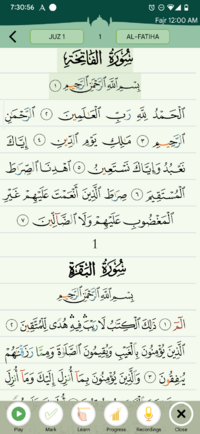 7:30:56
Fajr 12:00 AM
JUZ 1 1 AL-FATIHA
سُورَةُ الْفَاتِحَةِ
بِسْمِ اللَّهِ الرَّحْمَٰنِ الرَّحِيمِ ١
الْحَمْدُ لِلَّهِ رَبِّ الْعَالَمِينَ ٢ الرَّحْمَٰنِ
الرَّحِيمِ ٣ مَالِكِ يَوْمِ الدِّينِ ٤ إِيَّاكَ
نَعْبُدُ وَإِيَّاكَ نَسْتَعِينُ ٥ اهْدِنَا الصِّرَاطَ
الْمُسْتَقِيمَ ٦ صِرَاطَ الَّذِينَ أَنْعَمْتَ عَلَيْهِمْ غَيْرِ
الْمَغْضُوبِ عَلَيْهِمْ وَلَا الضَّالِّينَ ٧
1
سُورَةُ الْبَقَرَةِ
بِسْمِ اللَّهِ الرَّحْمَٰنِ الرَّحِيمِ
الم ١ ذَٰلِكَ الْكِتَابُ لَا رَيْبَ ۛ فِيهِ ۛ هُدًى لِّلْمُتَّقِينَ ٢
الَّذِينَ يُؤْمِنُونَ بِالْغَيْبِ وَيُقِيمُونَ الصَّلَاةَ وَمِمَّا رَزَقْنَاهُمْ
يُنفِقُونَ ٣ وَالَّذِينَ يُؤْمِنُونَ بِمَا أُنزِلَ إِلَيْكَ وَمَا أُنزِلَ
Play Mark Learn Progress Recordings Close